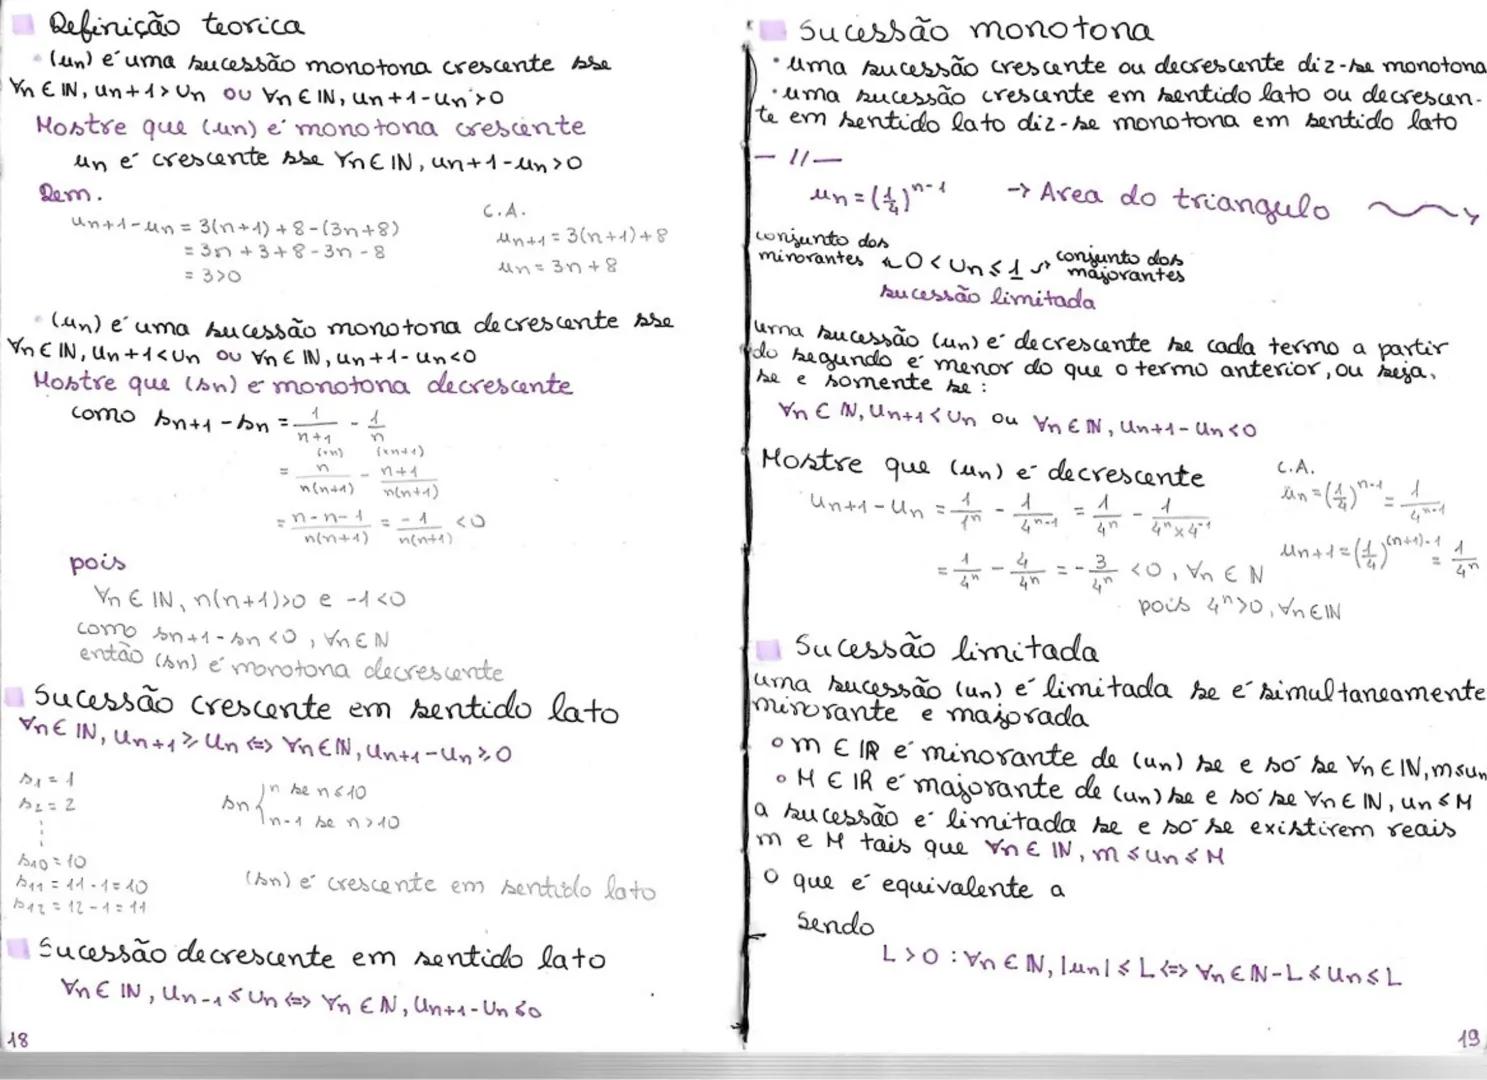 Definição teorica
• (un) é uma sucessão monotona crescente sse
∀n ∈ IN, un+1 > un ou ∀n ∈ IN, un+1-un > 0
Mostre que (un) é monotona crescente
un é crescente sse ∀n ∈ IN, un+1-un > 0
Dem.
un+1-un = 3(n+1)+8-(3n+8)
= 3n+3+8-3n-8
= 3>0
C.A.
un+1 = 3(n+1)+8
un = 3n+8
• (un) é uma sucessão monotona decrescente sse
∀n ∈ IN, un+1 < un ou ∀n ∈ IN, un+1-un<0
Mostre que (sn) é monotona decrescente
como sn+1 - sn = 1/n+1 - 1/n
(×n) (×n+1)
= n/n(n+1) - n+1/n(n+1)
= n-n-1/n(n+1) = -1/n(n+1) <0
pois
∀n ∈ IN, n(n+1)>0 e -1<0
como sn+1-sn<0, ∀n ∈ IN
então (sn) é monotona decrescente
Sucessão crescente em sentido lato
∀n ∈ IN, un+1 ≥ un <=> ∀n ∈ IN, un+1-un ≥ 0
s1 = 1
s2 = 2
s10 = 10
s11 = 11-1=10
s12 = 12-1=11
sn { n se n≤10
n-1 se n>10
(sn) é crescente em sentido lato
Sucessão decrescente em sentido lato
∀n ∈ IN, un-1 ≤ un <=> ∀n ∈ IN, un+1-un ≤ 0
18
Sucessão monotona
• uma sucessão crescente ou decrescente diz-se monotona
• uma sucessão crescente em sentido lato ou decrescen-
te em sentido lato diz-se monotona em sentido lato
— // —
un = (1/4)^n-1 → Area do triangulo
conjunto dos minorantes ← 0 < un ≤ 1 → conjunto dos majorantes
sucessão limitada
uma sucessão (un) é decrescente se cada termo a partir
do segundo é menor do que o termo anterior, ou seja,
se e somente se:
∀n ∈ IN, un+1 < un ou ∀n ∈ IN, un+1-un<0
Mostre que (un) é decrescente
un+1-un = 1/1^n - 1/4^n-1 = 1/4^n - 1/4^n×4^-1
= 1/4^n - 4/4^n = -3/4^n <0, ∀n ∈ N
pois 4^n>0, ∀n ∈ IN
C.A.
un = (1/4)^n-1 = 1/4^n-1
un+1 = (1/4)^(n+1)-1 = 1/4^n
Sucessão limitada
uma sucessão (un) é limitada se é simultaneamente
minorante e majorada
• m ∈ IR é minorante de (un) se e só se ∀n ∈ IN, m≤un
• M ∈ IR é majorante de (un) se e só se ∀n ∈ IN, un ≤ M
a sucessão é limitada se e só se existirem reais
m e M tais que ∀n ∈ IN, m ≤ un ≤ M
O que é equivalente a
Sendo
L>0 : ∀n ∈ IN, |un| ≤ L <=> ∀n ∈ N-L ≤ un ≤ L
19